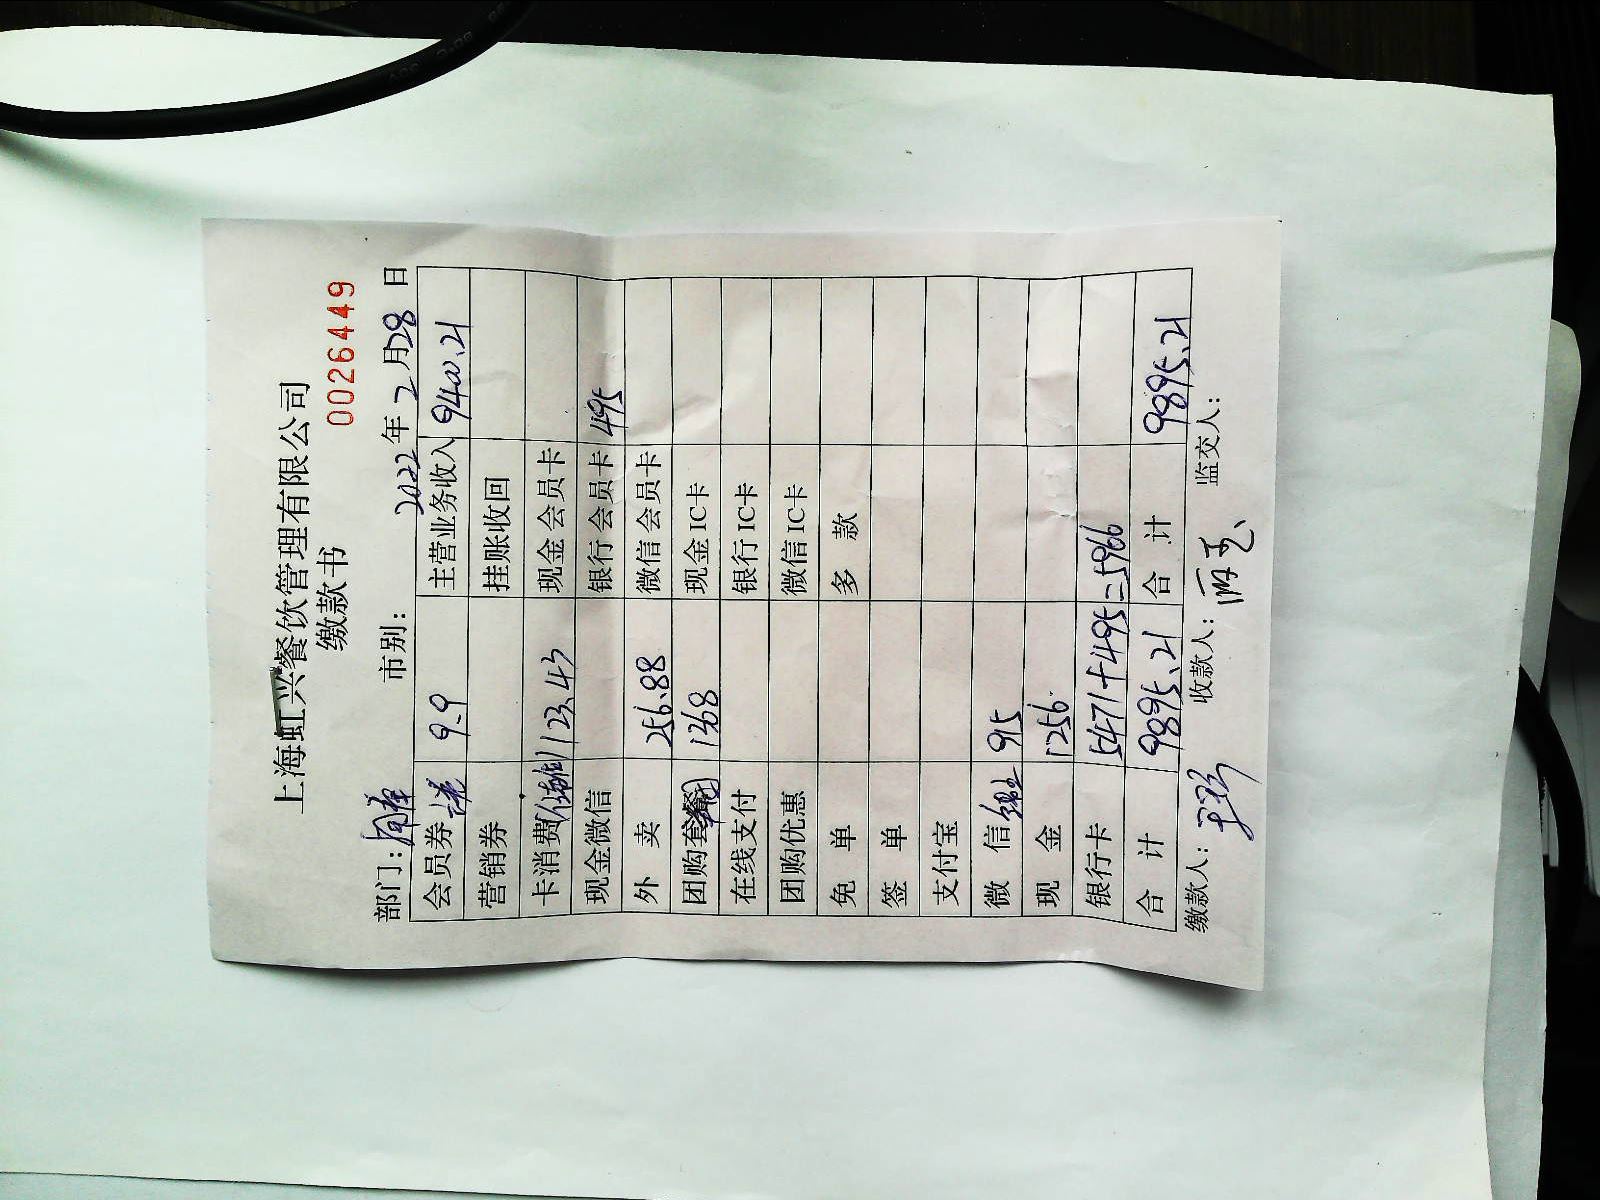 上海虹兴餐饮管理有限公司
缴款书
0026449
部门: 市别: 2022年2月28日
会员券 9.9 主营业务收入 9400.21
营销券 挂账收回
卡消费 123.43 现金会员卡
现金微信 银行会员卡 495
外 卖 256.88 微信会员卡
团购套餐 1368 现金IC卡
在线支付 银行IC卡
团购优惠 微信IC卡
免 单 多 款
签 单
支付宝
微 信 915
现 金 1256
银行卡 5471+495=5966
合 计 9895.21 合 计 9895.21
缴款人: 收款人: 监交人: